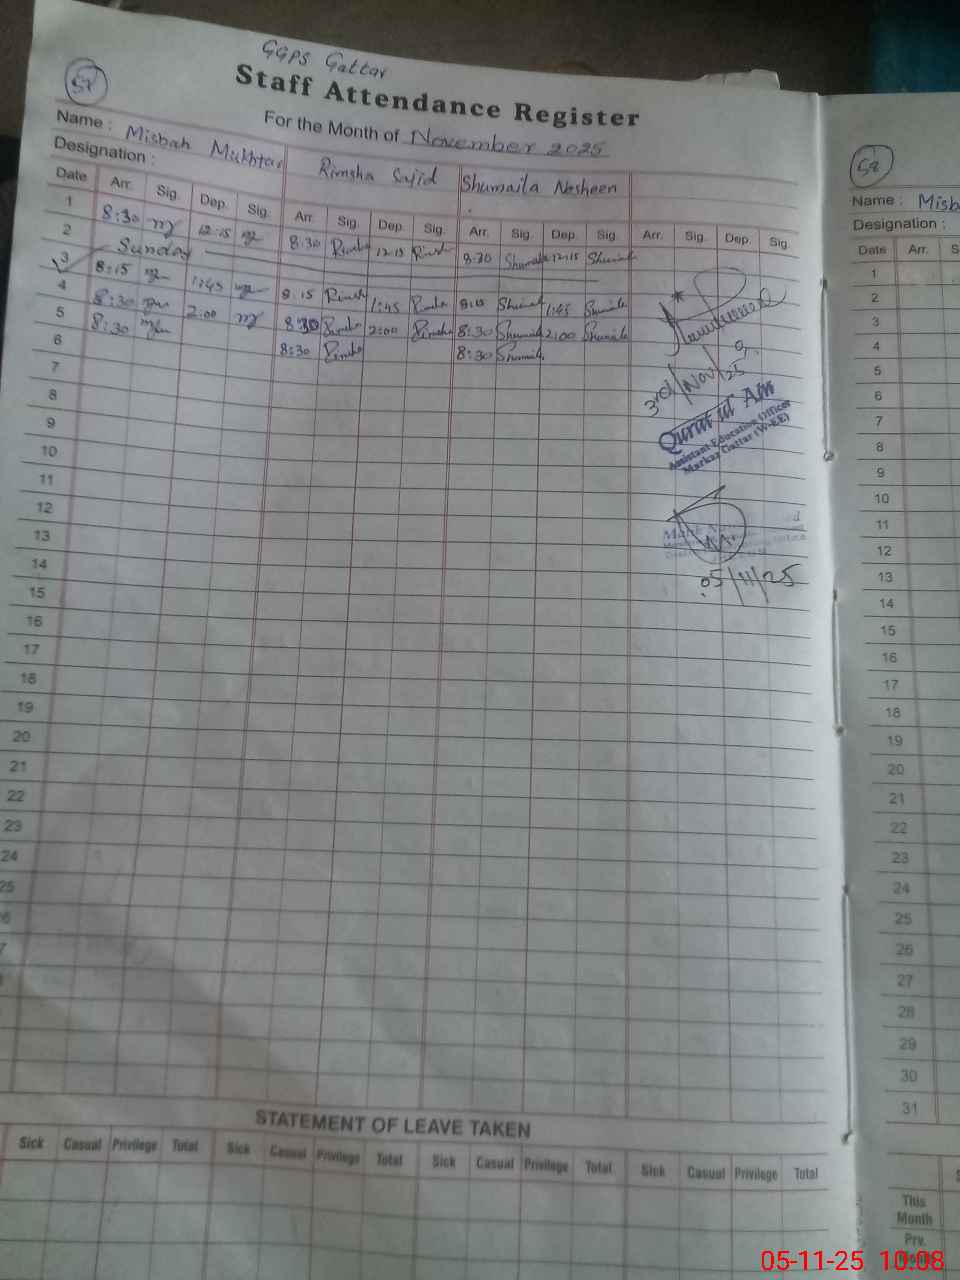 GGPS Gattar
58
Staff Attendance Register
For the Month of November 2025
Name : Misbah Mukhtar Rimsha Sajid Shumaila Nosheen
Designation :
Date Arr. Sig. Dep. Sig. Arr. Sig. Dep. Sig. Arr. Sig. Dep. Sig. Arr. Sig. Dep. Sig.
1 8:30 12:15 8:30 Rimsha 12:15 Rimsha 8:30 Shumaila 12:15 Shumaila
2 Sunday
3 8:15 1:45 8:15 Rimsha 1:45 Rimsha 8:15 Shumaila 1:45 Shumaila
4 8:30 2:00 8:30 Rimsha 2:00 Rimsha 8:30 Shumaila 2:00 Shumaila
5 8:30 8:30 Rimsha 8:30 Shumaila
6
7
8
9
10
11
12
13
14
15
16
17
18
19
20
21
22
23
24
25
3rd/Nov/25
Qurat ul Ain
Assistant Education Officer
Markaz Gattar (W-EE)
05/11/25
STATEMENT OF LEAVE TAKEN
Sick Casual Privilege Total Sick Casual Privilege Total Sick Casual Privilege Total Sick Casual Privilege Total
58
Name : Misb
Designation :
Date Arr. S
1
2
3
4
5
6
7
8
9
10
11
12
13
14
15
16
17
18
19
20
21
22
23
24
25
26
27
28
29
30
31
This
Month
Prv.
05-11-25 10:08